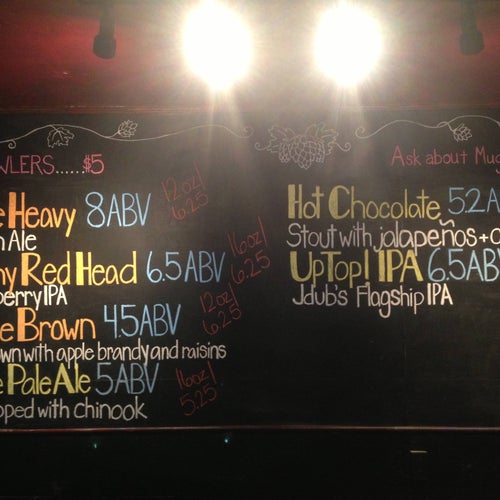 WLERS......$5
Ask about Mug
e Heavy 8ABV 12oz/
6.25
n Ale
ny Red Head 6.5ABV 16oz/
6.25
berry IPA
e Brown 4.5ABV 12oz/
6.25
own with apple brandy and raisins
e Pale Ale 5ABV 16oz/
5.25
pped with chinook
Hot Chocolate 5.2A
Stout with jalapeños + c
UpTop! IPA 6.5ABV
Jdub's Flagship IPA